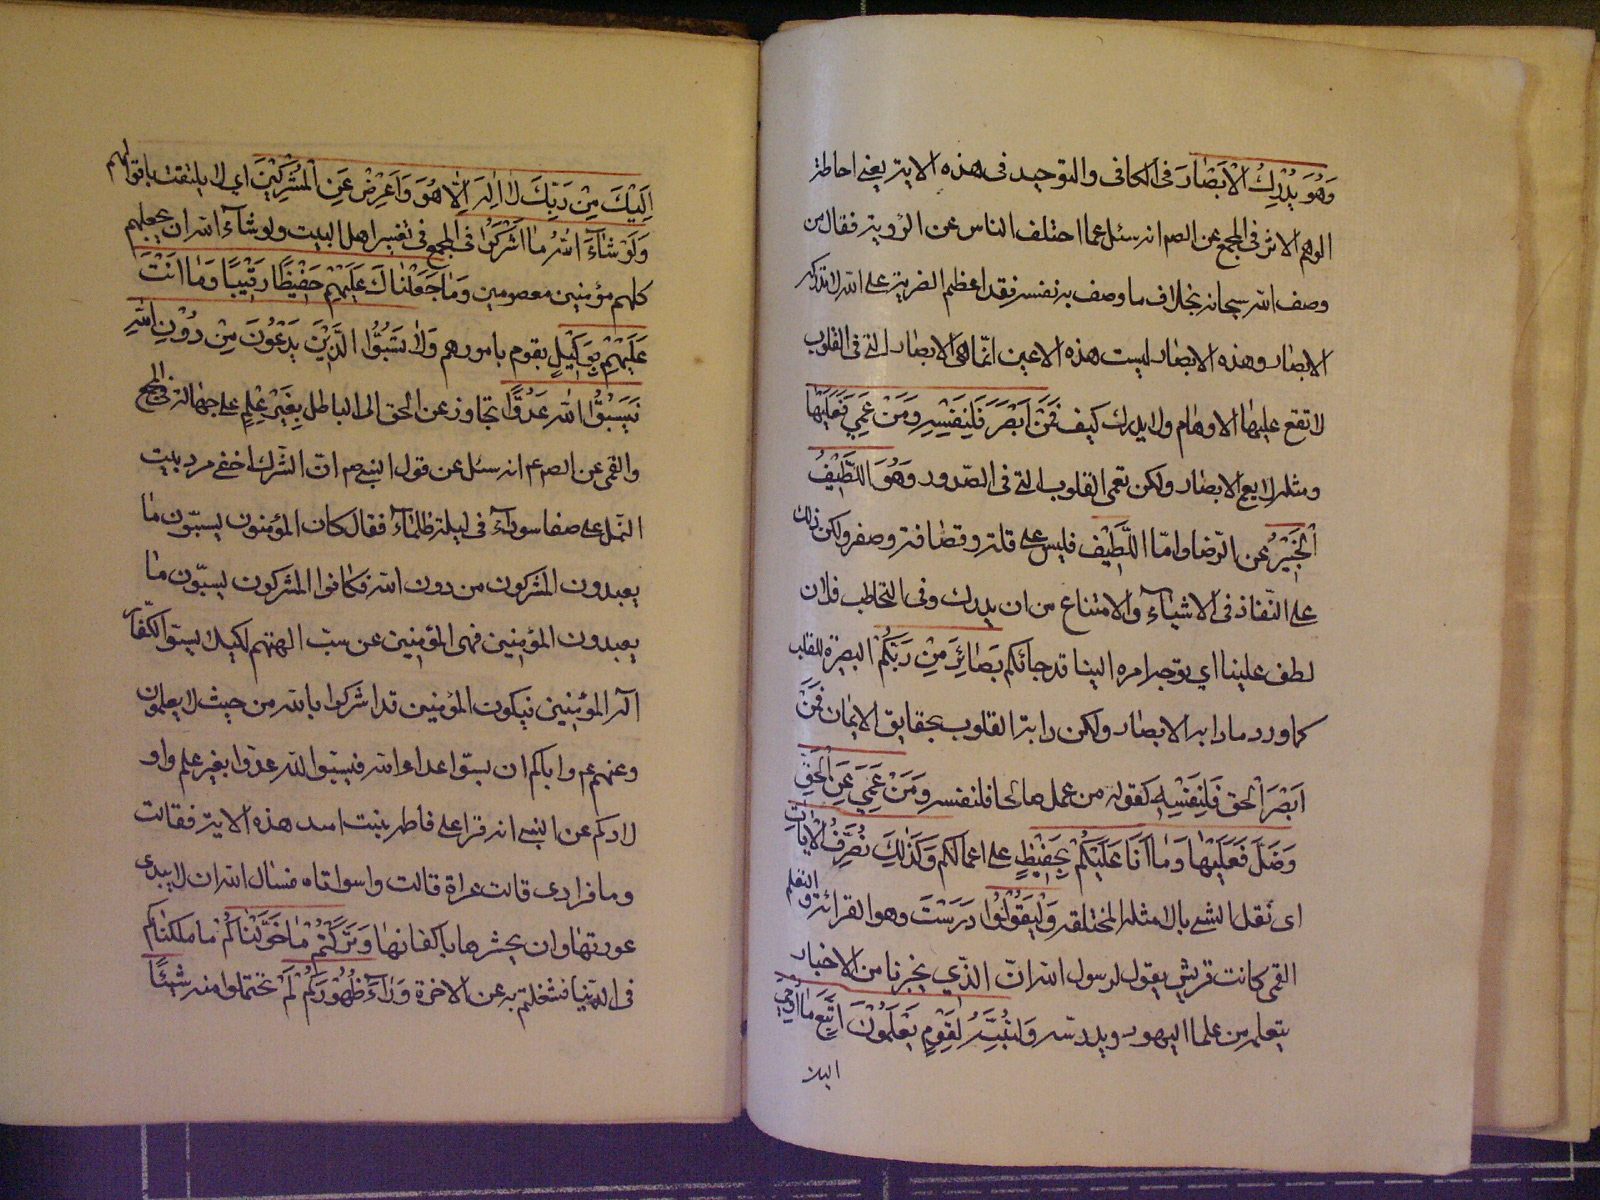 وَهُوَ يُدْرِكُ الْاَبْصَارَ فى الكافى والتوحيد فى هذه الاية يعنى احاطة
الوهم الاثر فى المجمع عن الصم انه سئل عما اختلف الناس عن الروية فقال من
وصف الله سبحانه بخلاف ما وصف به نفسه فقد اعظم الفرية على الله لا تدركه
الابصار وهذه الابصار ليست هذه الاعين انّما هى الابصار التى فى القلوب
لا تقع عليها الاوهام ولا يدرك كيف فَمَنْ اَبْصَرَ فَلِنَفْسِهِ وَمَنْ عَمِيَ فَعَلَيْهَا
ومثله لا يعم الابصار ولكن تعمى القلوب التى فى الصّدور وَهُوَ اللَّطِيْفُ
الْخَبِيْرُ عن الرّضا وامّا اللَّطِيْف فليس على قلة وقضافة وصغر ولكن ذلك
على النّفاذ فى الاشياء والامتناع من ان يدرك وفى التخاطب فلان
لطف علينا اى يوجه امره الينا قد جائكم بَصَائِرَ مِنْ رَبِّكُمْ البصيرة للقلب
كما ورد ما رابه الابصار ولكن رابة القلوب بحقايق الايمان فَمَنْ
اَبْصَرَ الحق فَلِنَفْسِهِ كقوله من عمل صالحا فلنفسه وَمَنْ عَمِيَ عَنِ الْحَقِّ
وَضَلَّ فَعَلَيْهَا وَمَا اَنَا عَلَيْكُمْ بِحَفِيْظٍ على اعمالكم وَكَذٰلِكَ نُصَرِّفُ الْاٰيَاتِ
اى نقل الشىء بالامثلة المختلقه وَلِيَقُوْلُوْا دَرَسْتَ وهو القرائة و التعلم
القمى كانت قريش يقول لرسول الله انّ الذى يخبرنا من الاخبار
يتعلم من علما اليهود ويدرسه وَلِنُبَيِّنَهُ لِقَوْمٍ يَعْلَمُوْنَ اتَّبِعْ مَا اُوْحِيَ
اليك
اِلَيْكَ مِنْ رَبِّكَ لَا اِلٰهَ اِلَّا هُوَ وَاَعْرِضْ عَنِ الْمُشْرِكِيْنَ اى لا يلتفت باقوالهم
وَلَوْ شَآءَ اللهُ مَا اَشْرَكُوْا فى المجمع فى تفسير اهل البيت ولو شاء الله ان يجعلهم
كلهم مؤمنين معصومين وَمَا جَعَلْنَاكَ عَلَيْهِمْ حَفِيْظًا رَقِيْبًا وَمَا اَنْتَ
عَلَيْهِمْ بِوَكِيْلٍ يقوم بامورهم وَلَا تَسُبُّوْا الَّذِيْنَ يَدْعُوْنَ مِنْ دُوْنِ اللهِ
فَيَسُبُّوْا الله عَدْوًا تجاوز عن الحق الى الباطل بِغَيْرِ عِلْمٍ على جهالة فى المجمع
والقمى عن الصم ع انه سئل عن قول النبى ص انّ الشرك اخفى من دبيب
النمل على صفا سوداء فى ليلة ظلماء فقال كان المؤمنون يسبّون ما
يعبدون المشركون من دون الله فكانوا المشركون يسبّون ما
يعبدون المؤمنين فنهى المؤمنين عن سب الهتهم لكيلا يسبّوا الكفار
اله المؤمنين فيكون المؤمنين قد اشركوا بالله من حيث لا يعلمون
وعنهم ع واياكم ان يسبّوا اعداء الله فيسبوا الله عدوا بغير علم واو
لادكم عن النبى انه قرا على فاطمه بنت اسد هذه الاية فقالت
وما فرادى قالت عراة قالت واسوأتاه فسال الله ان لا يبدى
عورتها وان يحشرها باكفانها وَتَرَكْتُمْ مَا خَوَّلْنَاكُمْ ما ملكناكم
فى الدّنيا فشغلتم به عن الاخرة وَرَآءَ ظُهُوْرِكُمْ لَمْ تحتملوا منه شَيْئًا